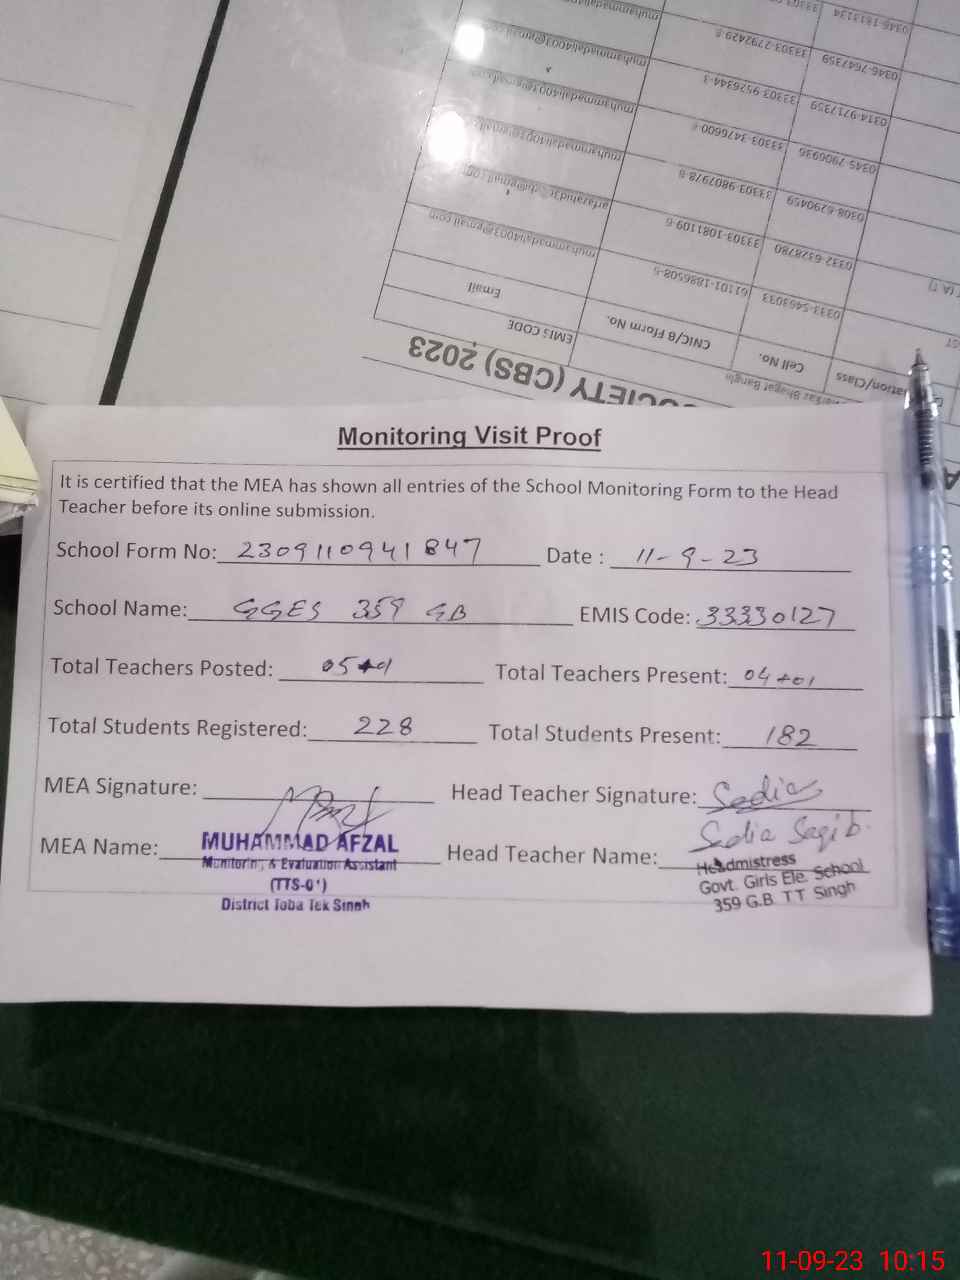 0346-1813134
muhammadali4003@gmail.com 33303-2792429-8 0346-7647359
muhammadali4003@gmail.com 33303-9576344-3 0314-9717359
33303-3476600- 0345-7906936
33303-9807978-8 0308-6290459
33303-1081109-6 0332-6328780
muhammadali4003@gmail.com 61101-1886508-5 0333-5463033
Email CNIC/B Fform No. Cell No. ation/Class
EMIS CODE
OCIETY (CBS) 2023
Monitoring Visit Proof
It is certified that the MEA has shown all entries of the School Monitoring Form to the Head
Teacher before its online submission.
School Form No: 2309110941847 Date : 11-9-23
School Name: GGES 359 GB EMIS Code: 33330127
Total Teachers Posted: 05+1 Total Teachers Present: 04+01
Total Students Registered: 228 Total Students Present: 182
MEA Signature: Head Teacher Signature: Sadia
MEA Name: MUHAMMAD AFZAL Head Teacher Name: Sadia Saqib
Monitoring & Evaluation Assistant
(TTS-0 )
District Toba Tek Singh
Headmistress
Govt. Girls Ele. School
359 G.B T T Singh
11-09-23 10:15